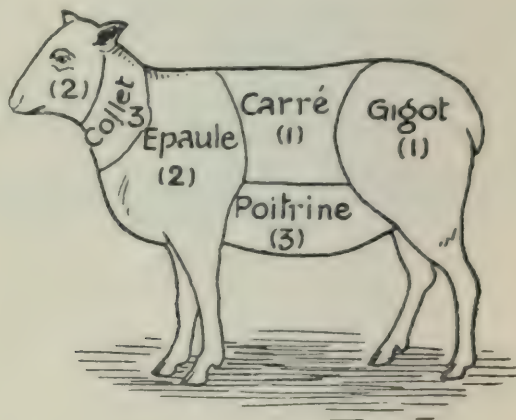 (2)
Collet
3
Epaule
(2)
Carré
(1)
Gigot
(1)
Poitrine
(3)